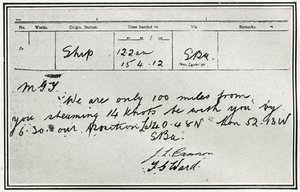 No. Words. Origin. Station. Time handed in. Via Remarks.
H. M.
Ship 122am SBa
15-4-12
MGY
We are only 100 miles from
you steaming 14 knots be with you by
6-30 our position Lat 40.48 N Lon 52.13 W
SBa.
J. D. Cannon
T. G. Ward